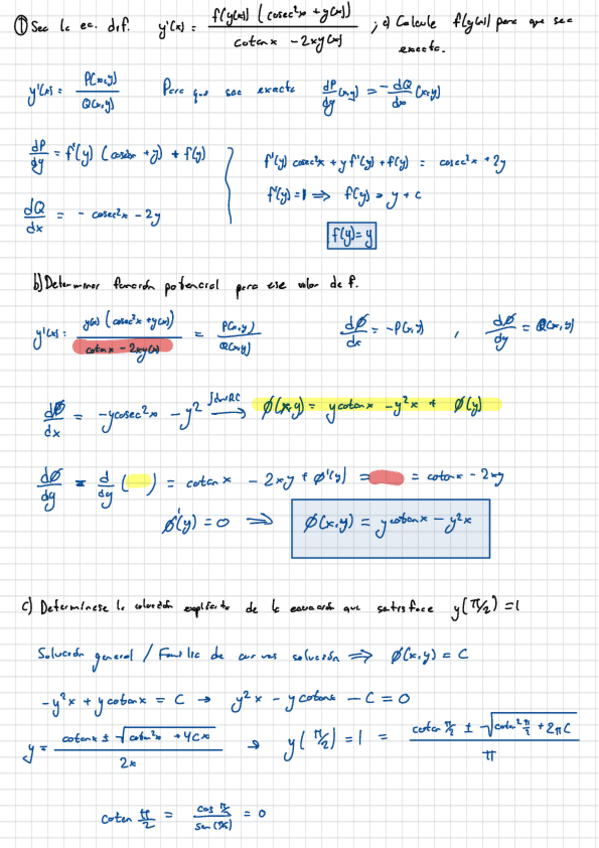 ① Sea la ec. dif. y'(x) = f(y(x)) (cosec²x + y(x)) / cotan x - 2xy(x) ; a) Calcule f(y(x)) para que sea exacta.
y'(x) = P(x,y) / Q(x,y) Para que sea exacta dP/dy (x,y) = -dQ/dx (x,y)
dP/dy = f'(y) (cosec²x + y) + f(y)
f'(y) cosec²x + y f'(y) + f(y) = cosec²x + 2y
f'(y) = 1 ⟹ f(y) = y + C
dQ/dx = - cosec²x - 2y
f(y) = y
b) Determinar función potencial para ese valor de f.
y'(x) = y(x) (cosec²x + y(x)) / cotan x - 2xy(x) = P(x,y) / Q(x,y) dØ/dx = -P(x,y) , dØ/dy = Q(x,y)
dØ/dx = -y cosec²x - y² → Ø(x,y) = y cotan x - y²x + Ø(y)
dØ/dy = d/dy ( ) = cotan x - 2xy + Ø'(y) = = cotan x - 2xy
Ø'(y) = 0 ⟹ Ø(x,y) = y cotan x - y²x
c) Determínese la solución explícita de la ecuación que satisface y(π/2) = 1
Solución general / Familia de curvas solución ⟹ Ø(x,y) = C
-y²x + y cotan x = C → y²x - y cotan x - C = 0
y = cotan x ± √(cotan²x + 4Cx) / 2x → y(π/2) = 1 = cotan π/2 ± √(cotan² π/2 + 2πC) / π
cotan π/2 = cos π/2 / sen (π/2) = 0